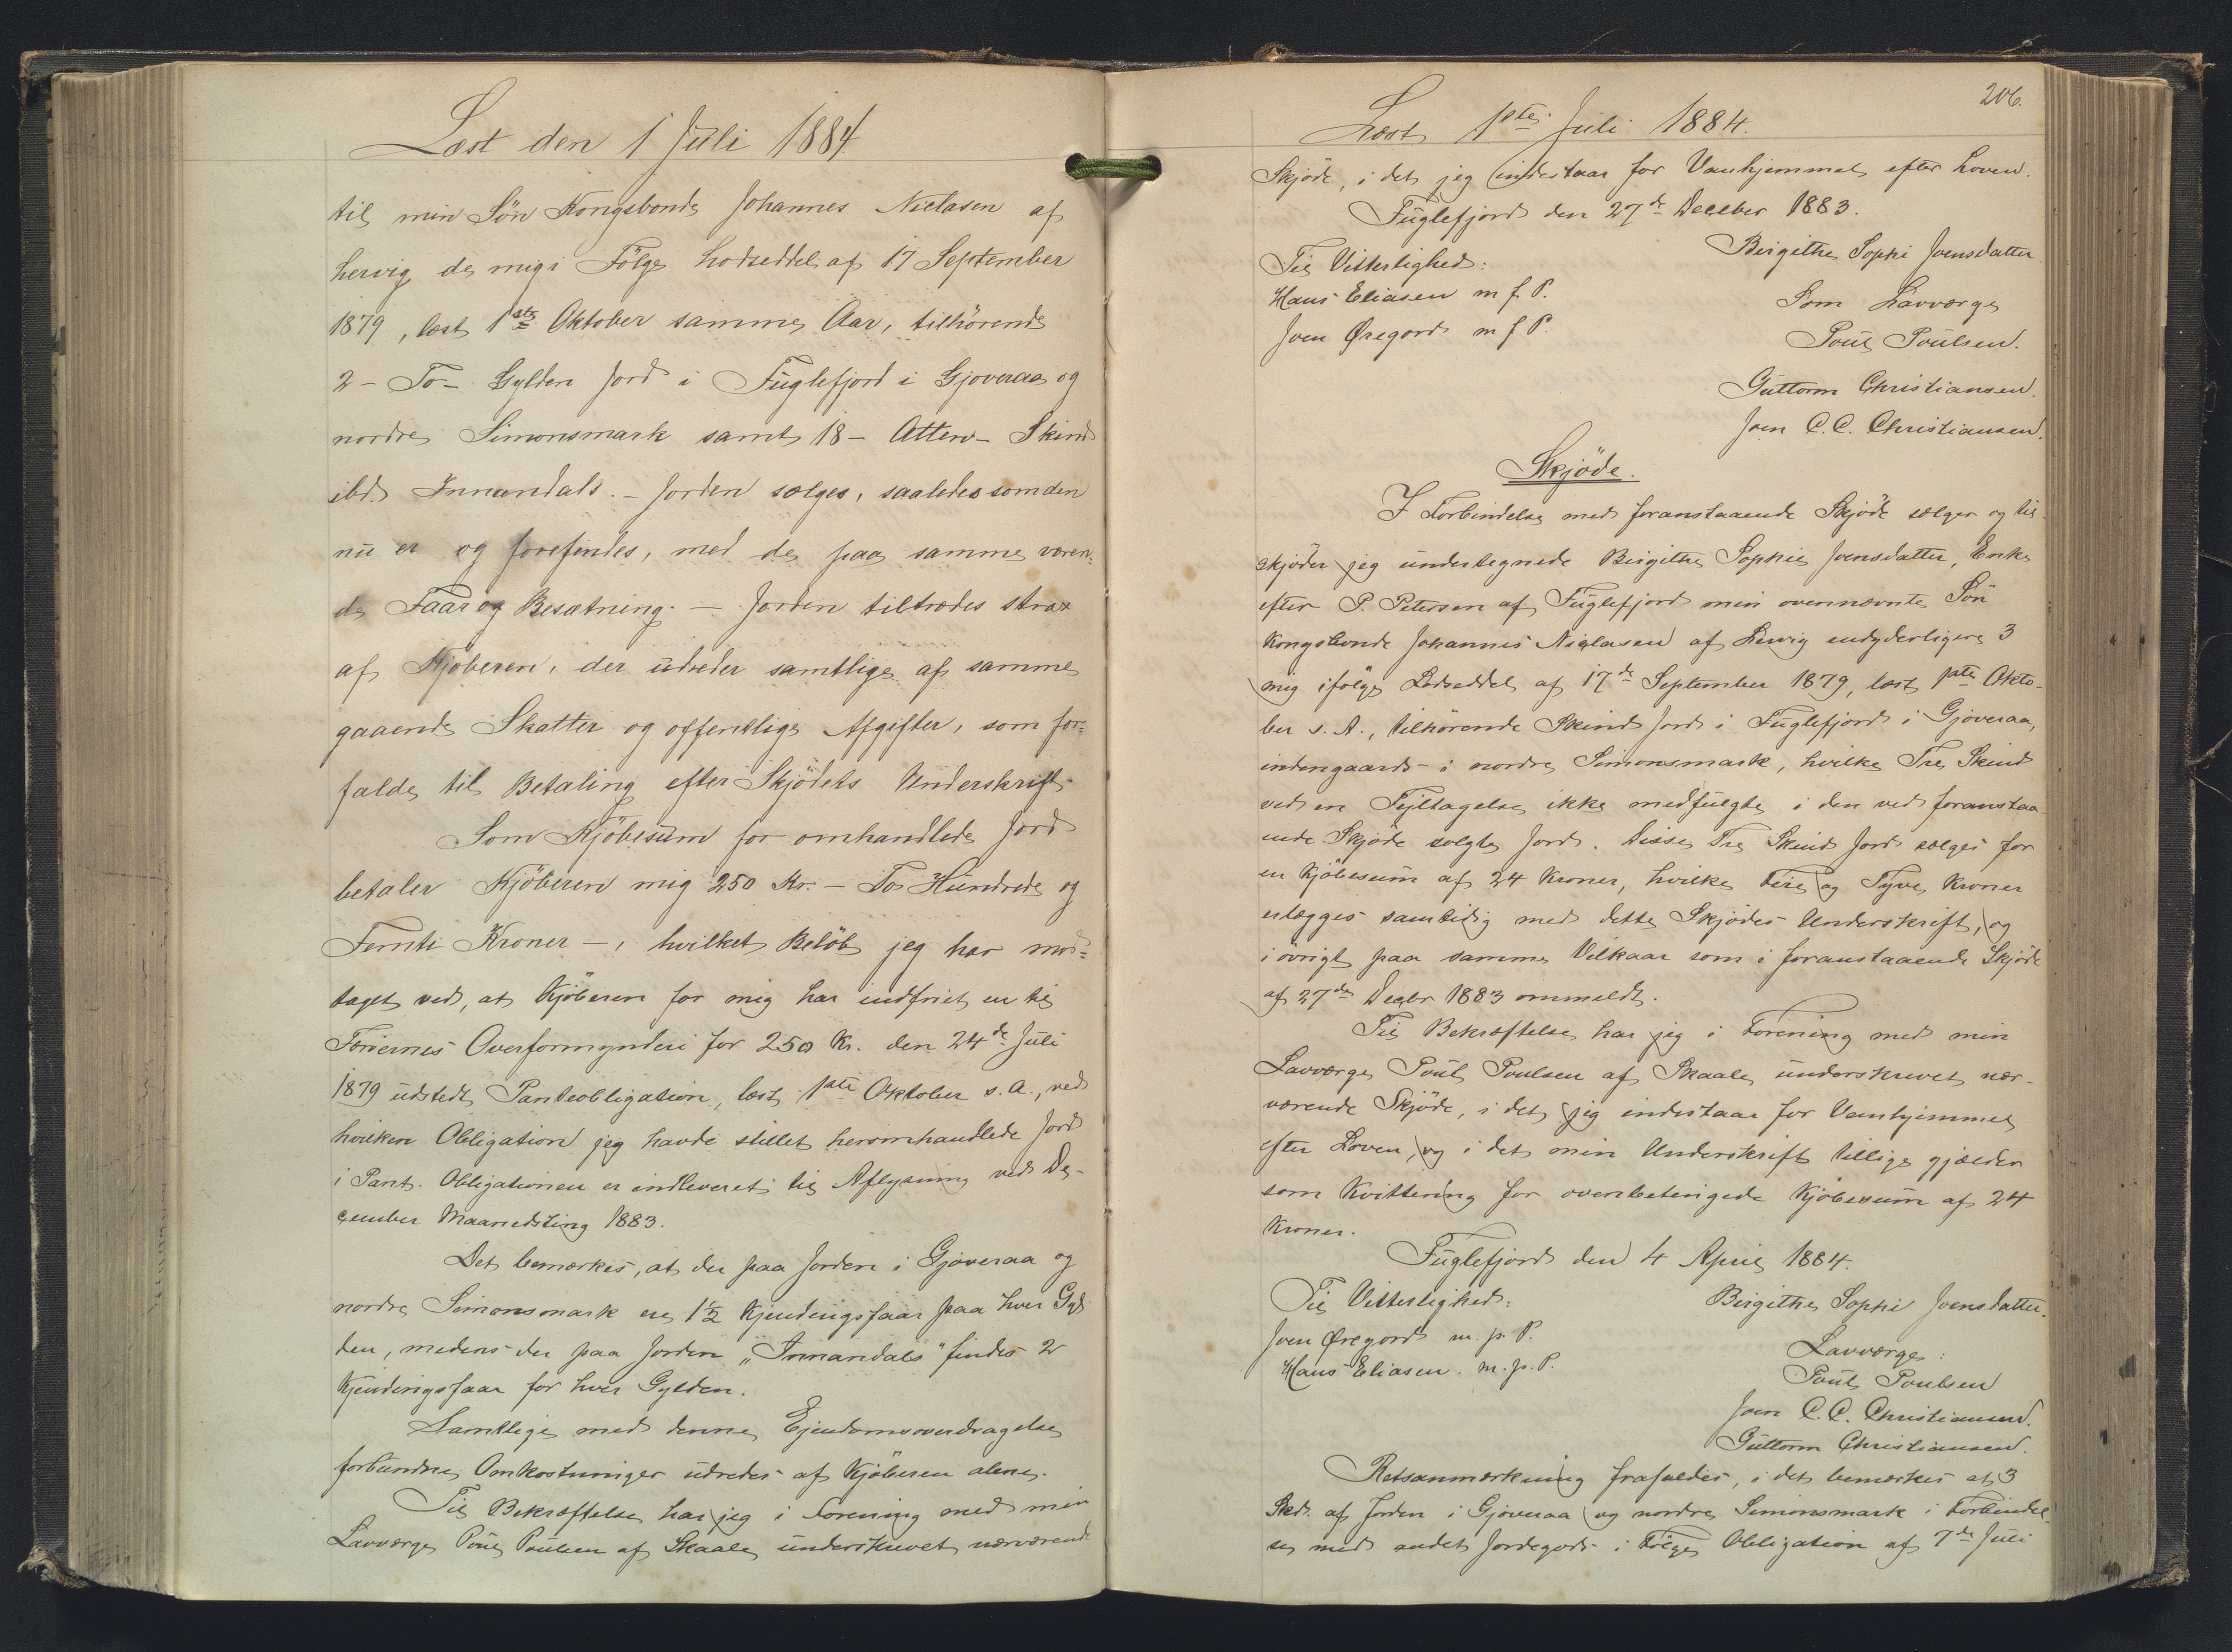 Læst den 1 Juli 1884
til min Søn Kongsbonde Johannes Niclasen af
Lervig de mig i Følge Lodseddel af 17 September
1879, læst 1ste Oktober samme Aar, tilhørende
2 - To - Gylden Jord i Fuglefjord i Gjoveraa og
nordre Simonsmark samt 18 - Atten - Skind
ibd. Innandals. - Jorden sælges, saaledes som den
nu er og forefindes, med de paa samme væren-
de Faar og Besætning. - Jorden tiltrædes strax
af Kjøberen, der udreder samtlige af samme
gaaende Skatter og offentlige Afgifter, som for-
falde til Betaling efter Skjødets Underskrift.
Som Kjøbesum for omhandlede Jord
betaler Kjøberen mig 250 Kr. - To Hundrede og
Femti Kroner -, hvilket Beløb jeg har mod-
taget ved, at Kjøberen for mig har indfriet en til
Færøernes Overformynderi for 250 Kr. den 24de Juli
1879 udstedt Panteobligation, læst 1ste Oktober s. A., ved
hvilken Obligation jeg havde stillet heromhandlede Jord
i Pant. Obligationen er indleveret til Aflysning ved De-
cember Maanedsting 1883.
Det bemærkes, at der paa Jorden i Gjoveraa og
nordre Simonsmark er 1½ Kjendingsfaar paa hver Gyl
den, medens der paa Jorden "Innandals" findes 2
Kjendingsfaar for hver Gylden.
Samtlige med denne Ejendomsoverdragelse
forbundne Omkostninger udredes af Kjøberen alene.
Til Bekræftelse har jeg i Forening med min
Lavværge Poul Poulsen af Skaale underskrevet nærværende
206.
Læst 1ste Juli 1884.
Skjøde, i det jeg indestaar for Vanhjemmel efter Loven.
Fuglefjord den 27de Decbber 1883.
Birgithe Sophi Joensdatter
Til Vitterlighed:
Hans Eliasen m f P.
Som Lavværge
Joen Øregord m f P.
Poul Poulsen.
Guttorm Christiansen.
Joen C. C. Christiansen.
Skjøde.
I Forbindelse med foranstaaende Skjøde sælger og til-
skjøder jeg undertegnede Birgithe Sophie Joensdatter, Enke
efter P. Petersen af Fuglefjord min ovennævnte Søn
Kongsbonde Johannes Niclasen af Lervig endyderligere 3
mig ifølge Lodseddel af 17de September 1879, læst 1ste Okto-
ber s. A., tilhørende Skind Jord i Fuglefjord i Gjoveraa,
indengaards i nordre Simonsmark, hvilke Tre Skind
ved en Fejltagelse ikke medfulgte i den ved foranstaa
ende Skjøde solgte Jord. Disse Tre Skind Jord sælges for
en Kjøbesum af 24 Kroner, hvilke Fire og Tyve Kroner
erlægges samtidig med dette Skjødes Underskrift, og
i øvrigt paa samme Vilkaar som i foranstaaende Skjøde
af 27de Decbr 1883 ommeldt.
Til Bekræftelse har jeg i Forening med min
Lavværge Poul Poulsen af Skaale underskrevet nær-
værende Skjøde, i det jeg indestaar for Vanhjemmel
efter Loven, og i det min Underskrift tillige gjælder
som Kvittering for ovenbetingede Kjøbesum af 24
Kroner.
Fuglefjord den 4 April 1884.
Til Vitterlighed:
Birgithe Sophi Joensdatter.
Joen Øregord m. p. P.
Lavværge:
Hans Eliasen. m. p. P.
Poul Poulsen
Joen C. C. Christiansen.
Guttorm Christiansen.
Retsanmærkning frafaldes, i det bemærkes at 3
Skd. af Jorden i Gjoveraa og nordre Simonsmark i Forbindel-
se med andet Jordegods i Følge Obligation af 7de Juli